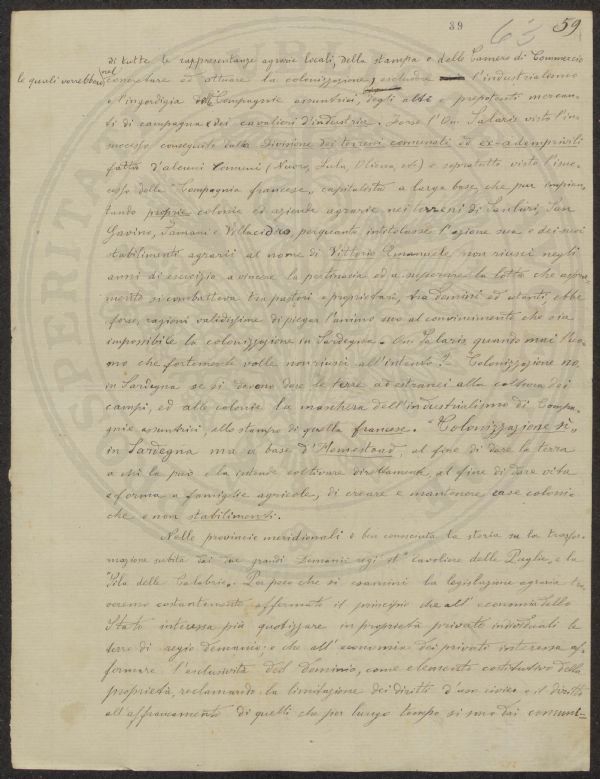 39 63 59
di tutte le rappresentanze agrarie locali, della stampa e delle Camere di Commercio
le quali vorrebbero, nel concretare ed attuare la colonizzazione, escludere l'industrialismo
e l'ingordigia delle Compagnie assuntrici, degli abbi e prepotenti mercan-
ti di campagna e dei cavalieri d'industria. Forse l'On. Salaris visto l'in-
successo conseguito dalla Divisione dei terreni comunali ed ex-ademprivili
fatta d'alcuni Comuni (Nuoro, Lula, Oliena, etc) e sopratutto visto l'insuc-
cesso della "Compagnia francese", capitalista a larga base, che pur impian-
tando proprie colonie ed aziende agrarie nei terreni di Sanluri, San
Gavino, Samassi e Villacidro, perquanto intitolasse l'azione sua e dei suoi
stabilimenti agrarii al nome di Vittorio Emanuele, non riuscì negli
anni di esercizio a vincere la pertinacia ed a superare la lotta che aspra-
mente si combatteva tra pastori e proprietari, tra domini ed utenti, ebbe
forse, ragioni validissime di piegar l'animo suo al convincimento che sia
impossibile la colonizzazione in Sardegna. On. Salaris quando mai l'uo-
mo che fortemente volle non riuscì all'intento? "Colonizzazione no,
in Sardegna se si devono dare le terre ad estranei alla coltura dei
campi, ed alle colonie la maschera dell'industrialismo di Compa-
gnie assuntrici, allo stampo di quella francese. "Colonizzazione sì"
in Sardegna ma a base d'Homestead, al fine di dare la terra
a chi la può e la intende coltivare direttamente, al fine di dare vita
e forma a famiglie agricole, di creare e mantenere case coloni-
che e non stabilimenti.
Nelle provincie meridionali è ben conosciuta la storia su la trasfor-
mazione subita dai due grandi Demanii regi il Tavoliere delle Puglie, e la
"Sila delle Calabrie". Per poco che si esamini la legislazione agraria tro-
veremo costantemente affermato il principio che all'economia dello
Stato interessa più quotizzare in proprietà private individuali le
terre di regio demanio; e che all'economia dei privati interessa af-
fermare l'esclusività del dominio, come elemento costitutivo della
proprietà, reclamando la limitazione dei diritti d'uso civico e il diritto
all'affrancamento di quelli che per lungo tempo si sono dai comuni-